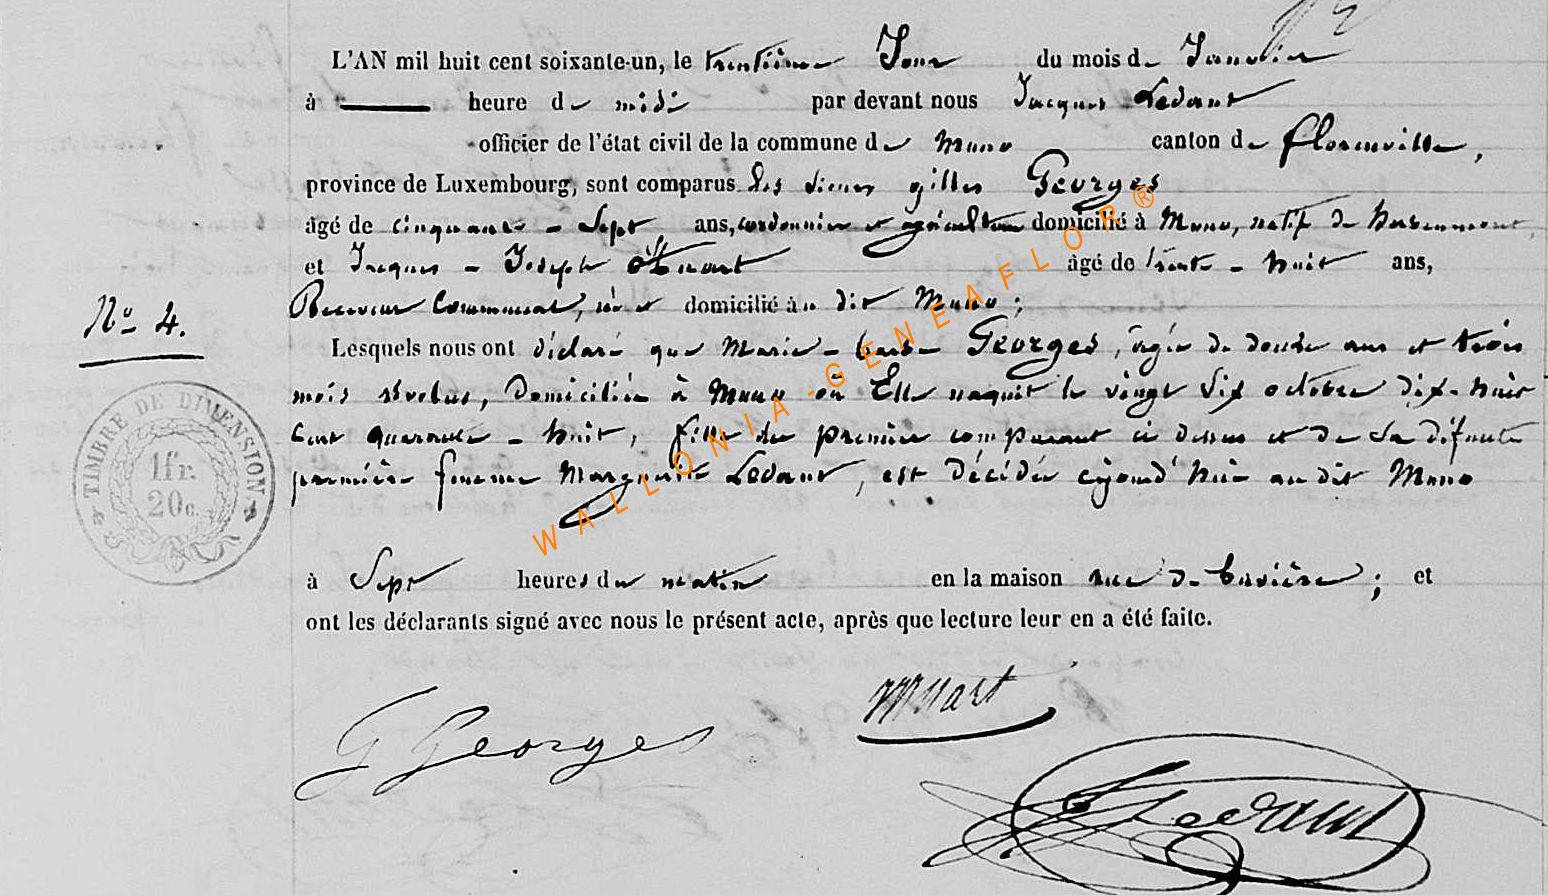 L'AN mil huit cent soixante-un, le trentième Jour du mois de Janvier
à heure de midi par devant nous Jacques Ledant
officier de l'état civil de la commune de Muno canton de florenville,
province de Luxembourg, sont comparus Les sieurs gilles Georges
âgé de cinquante-Sept ans, cordonnier et agriculteur domicilié à Muno, natif de
et Jacques-Joseph âgé de trente-huit ans,
Receveur Communal, né et domicilié au dit Muno;
No 4.
Lesquels nous ont déclaré que Marie- Georges, âgée de douze ans et trois
mois révolus, Domiciliée à Muno où Elle naquit le vingt Six octobre dix-huit
Cent quarante-huit, fille du premier comparant ci dessus et de Sa défunte
première femme Marguerite Ledant, est Décédée cejourd'hui au dit Muno
TIMBRE DE DIMENSION
1fr.
20c.
à Sept heures du matin en la maison rue de ; et
ont les déclarants signé avec nous le présent acte, après que lecture leur en a été faite.
G Georges
Ledant
WALLONIA-GENEAFLOR®